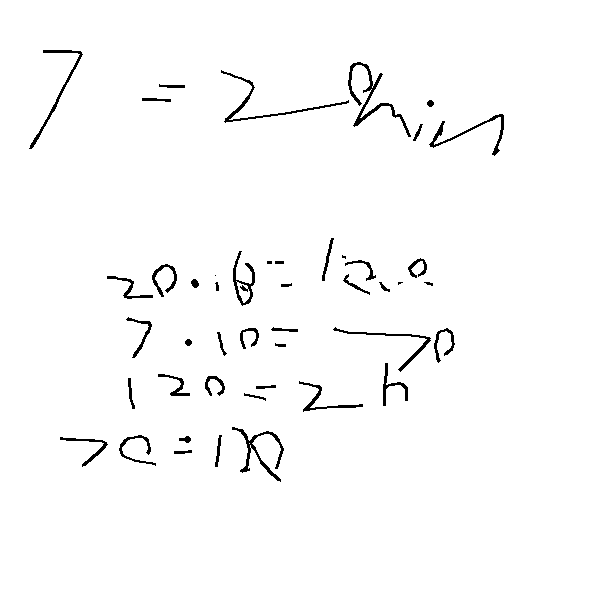 7 = 20min
20 · 6 = 120
7 · 10 = 70
120 = 2h
70 = 120